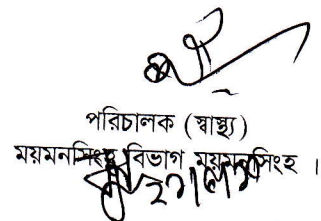 পরিচালক (স্বাস্থ্য)
ময়মনসিংহ বিভাগ ময়মনসিংহ ।